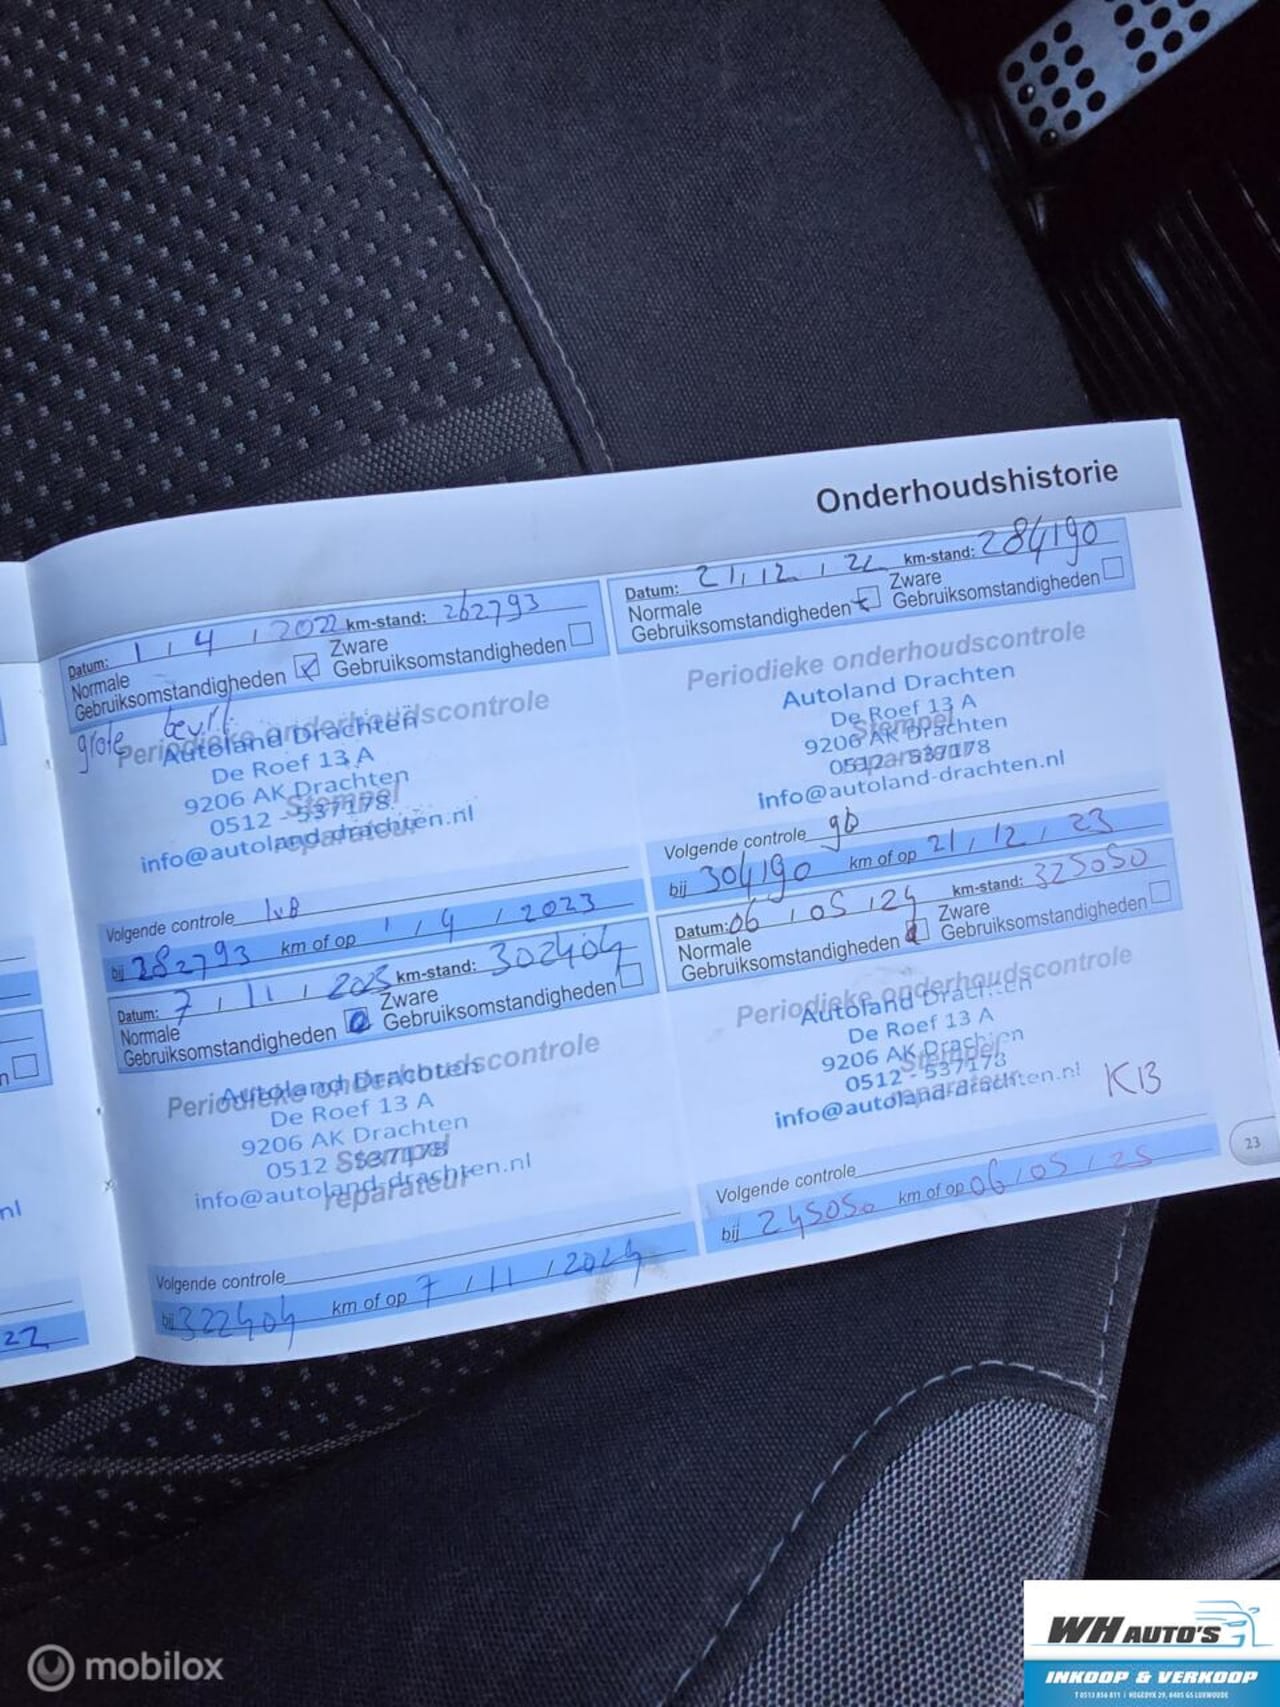 Onderhoudshistorie
Datum: 1 / 4 / 2022 km-stand: 262793
Normale
Gebruiksomstandigheden
Zware
Gebruiksomstandigheden
grote beurt
Periodieke onderhoudscontrole
Autoland Drachten
De Roef 13 A
9206 AK Drachten
Stempel
0512 - 537178
reparateur
info@autoland-drachten.nl
Volgende controle
bij 282793 km of op 1 / 4 / 2023
Datum: 7 / 11 / 2023 km-stand: 302404
Normale
Gebruiksomstandigheden
Zware
Gebruiksomstandigheden
Periodieke onderhoudscontrole
Autoland Drachten
De Roef 13 A
9206 AK Drachten
Stempel
0512 537178
info@autoland-drachten.nl
reparateur
Volgende controle
bij 322404 km of op 7 / 11 / 2024
Datum: 21 / 12 / 22 km-stand: 284190
Normale
Gebruiksomstandigheden
Zware
Gebruiksomstandigheden
Periodieke onderhoudscontrole
Autoland Drachten
De Roef 13 A
Stempel
9206 AK Drachten
0512 - 537178
reparateur
info@autoland-drachten.nl
Volgende controle gb
bij 304190 km of op 21 / 12 / 23
Datum: 06 / 05 / 24 km-stand: 325050
Normale
Gebruiksomstandigheden
Zware
Gebruiksomstandigheden
Periodieke onderhoudscontrole
Autoland Drachten
De Roef 13 A
9206 AK Drachten
Stempel
0512 - 537178
reparateur
info@autoland-drachten.nl
KB
Volgende controle
bij 245050 km of op 06 / 05 / 25
23
nl
22
mobilox
WH AUTO'S
INKOOP & VERKOOP
T 0513 856 811 | HEGEDYK 29, 8405 GS LUXWOUDE